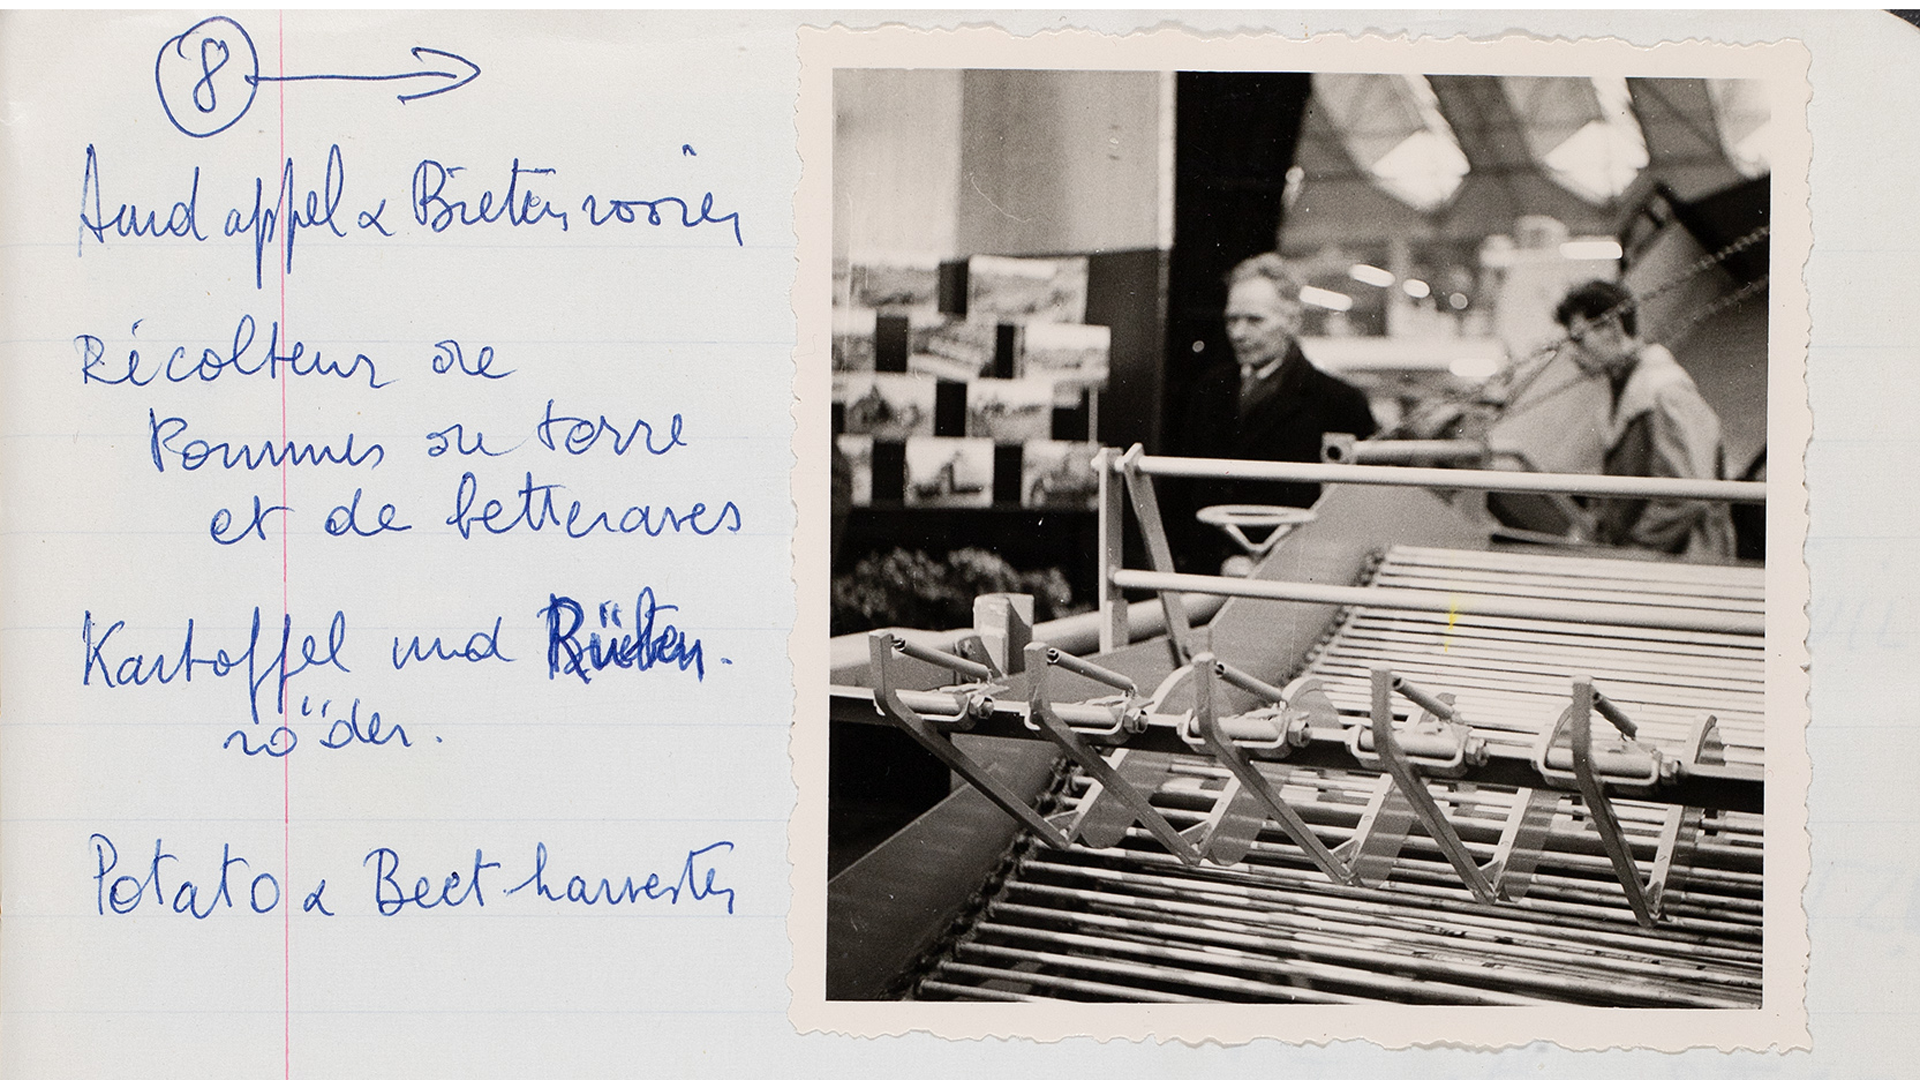 8
Aardappel & Bietenrooier
Récolteur de
Pommes de terre
et de betteraves
Kartoffel und Rüben.
röder.
Potato & Beet harvester